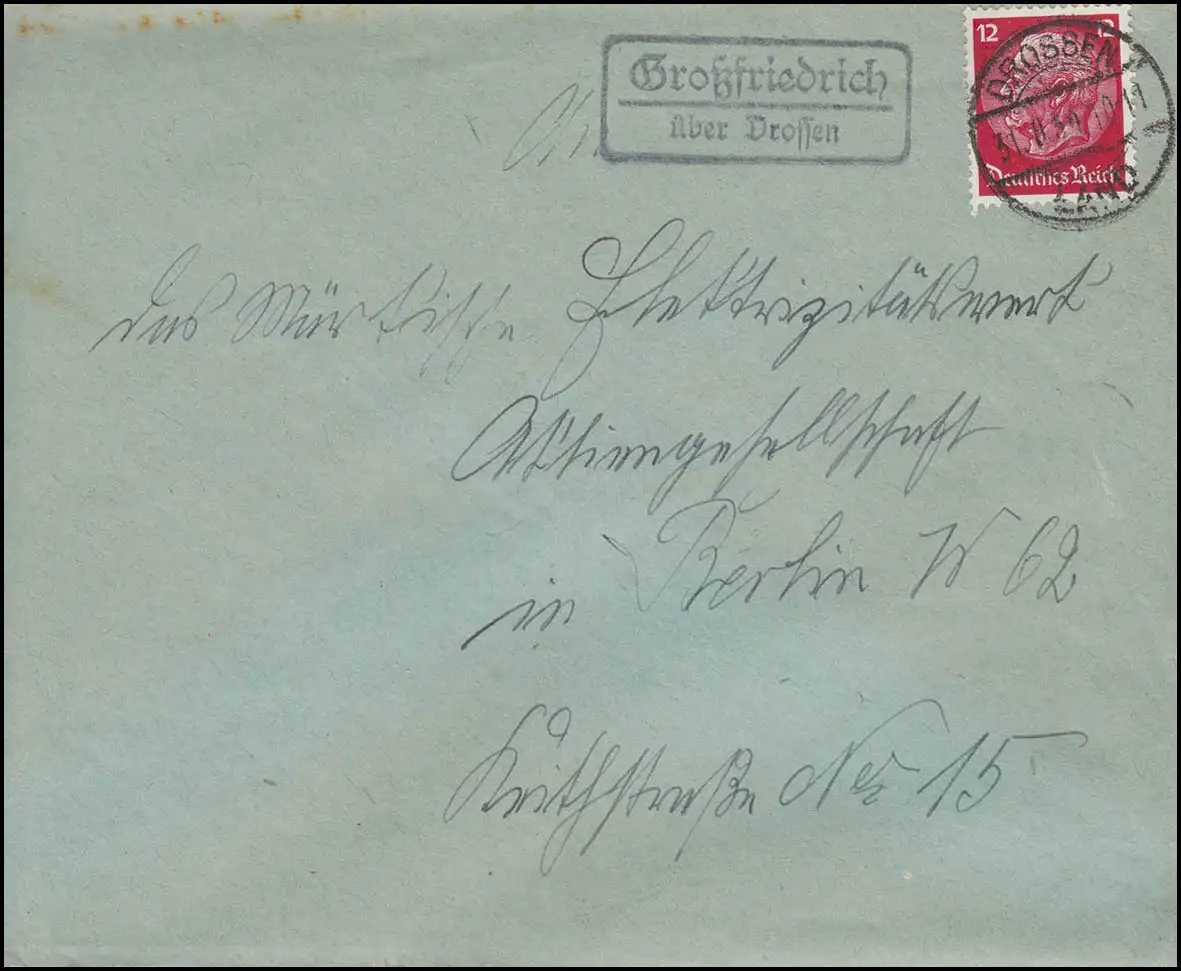 Großfriedrich
über Drossen
12 12
DROSSEN
LAND
Deutsches Reich
An
das Märkische Elektrizitätswerk
Aktiengesellschaft
in Berlin W 62
Keithstraße No 15